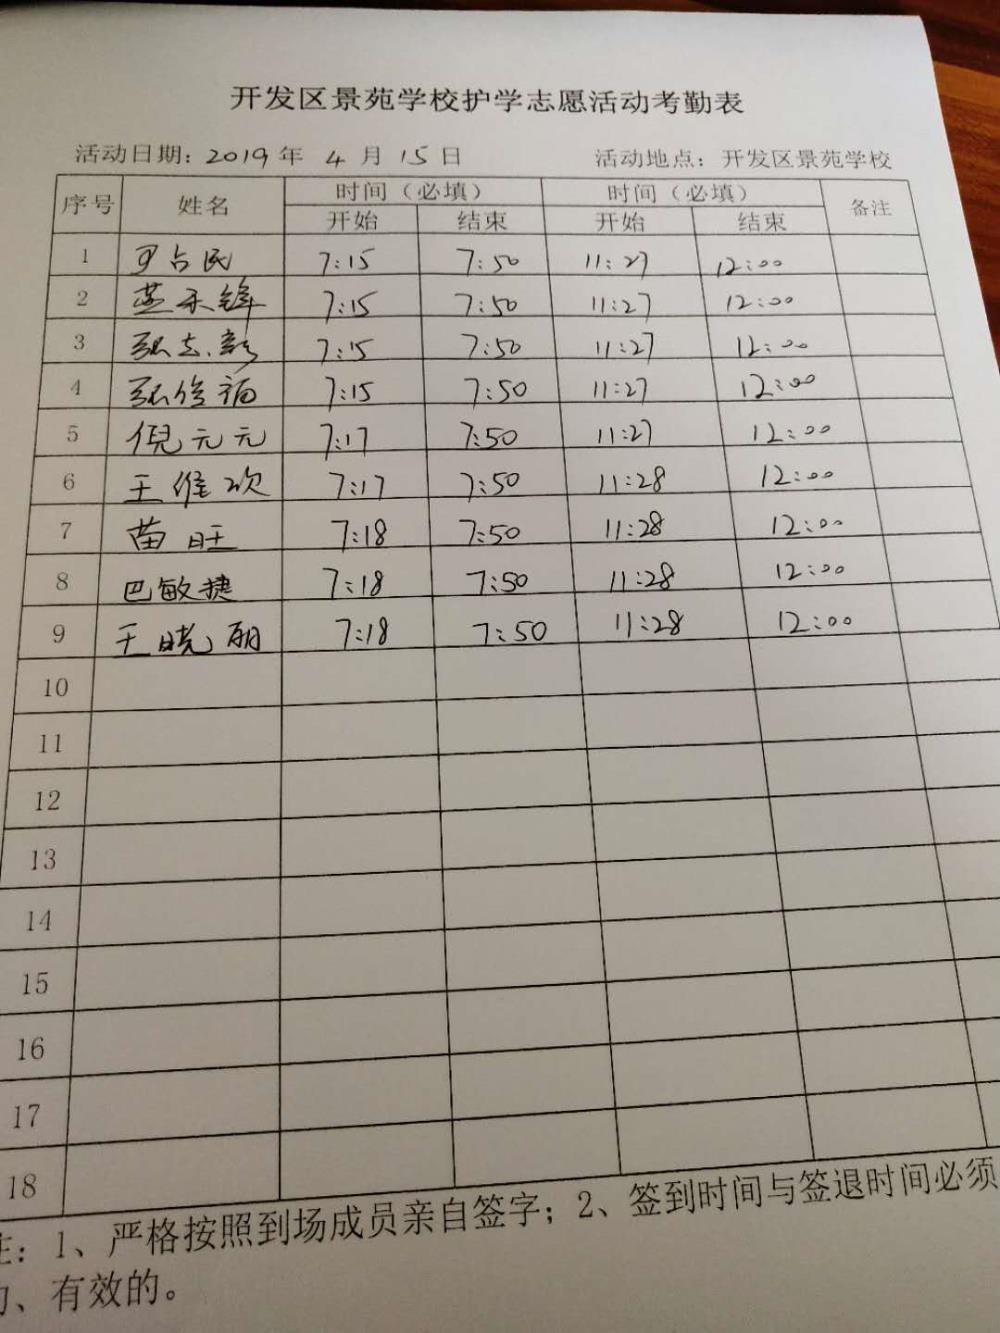 开发区景苑学校护学志愿活动考勤表
活动日期: 2019 年 4 月 15 日 活动地点: 开发区景苑学校
序号 姓名 时间（必填） 时间（必填） 备注
开始 结束 开始 结束
1 尹占民 7:15 7:50 11:27 12:00
2 7:15 7:50 11:27 12:00
3 张志彭 7:15 7:50 11:27 12:00
4 张俊福 7:15 7:50 11:27 12:00
5 倪元元 7:17 7:50 11:27 12:00
6 王维欢 7:17 7:50 11:28 12:00
7 苗旺 7:18 7:50 11:28 12:00
8 巴敏捷 7:18 7:50 11:28 12:00
9 王晓丽 7:18 7:50 11:28 12:00
10
11
12
13
14
15
16
17
18
注: 1、严格按照到场成员亲自签字; 2、签到时间与签退时间必须
、有效的。